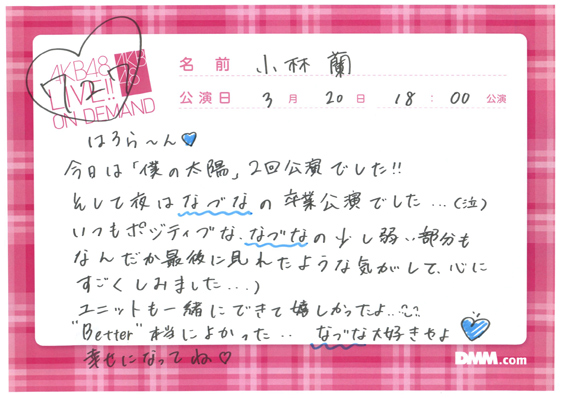 AKB48
LIVE!!
ON DEMAND
AKB
48
727
名前 小林 蘭
公演日 3月 20日 18:00 公演
はろら〜ん
今日は「僕の太陽」2回公演でした!!
そして夜はなづなの卒業公演でした…(泣)
いつもポジティブな、なづなの少し弱い部分も
なんだか最後に見れたような気がして、心に
すごくしみました…)
ユニットも一緒にできて嬉しかったよ…
"Better"本当によかった‥ なづな大好きやよ
幸せになってね♡
DMM.com